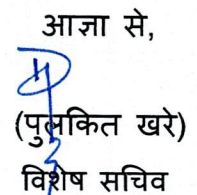 आज्ञा से,
(पुलकित खरे)
विशेष सचिव